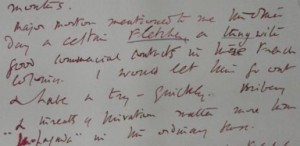 months.
Major Morton mentioned to me the other
day a certain Fletcher a with
good commercial contacts in French
colonies. I would let him go out
& have a try - quickly. Bribery
& threats of privation matter more than
"propaganda" in the ordinary sense.